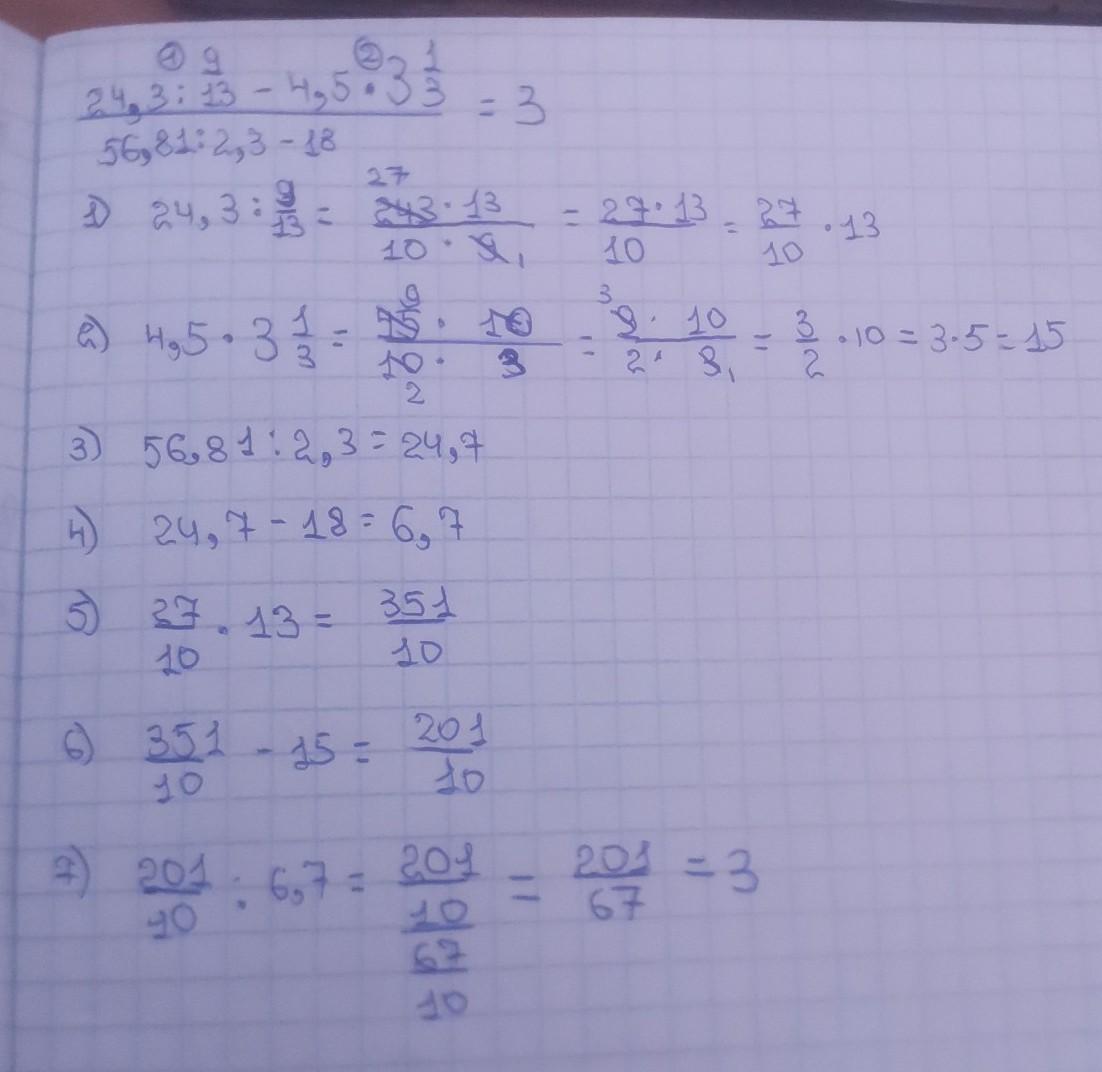 ① 9 ② 1
24,3 : 13 − 4,5 · 3 3 = 3
56,81 : 2,3 − 18
27
1) 24,3 : 9/13 = 243 · 13 / 10 · 9 1 = 27 · 13 / 10 = 27/10 · 13
9 3
2) 4,5 · 3 1/3 = 45 · 10 / 10 · 3 = 9 · 10 / 2 · 3 1 = 3/2 · 10 = 3 · 5 = 15
2
3) 56,81 : 2,3 = 24,7
4) 24,7 − 18 = 6,7
5) 27/10 · 13 = 351/10
6) 351/10 − 15 = 201/10
7) 201/10 : 6,7 = 201/10 / 67/10 = 201/67 = 3